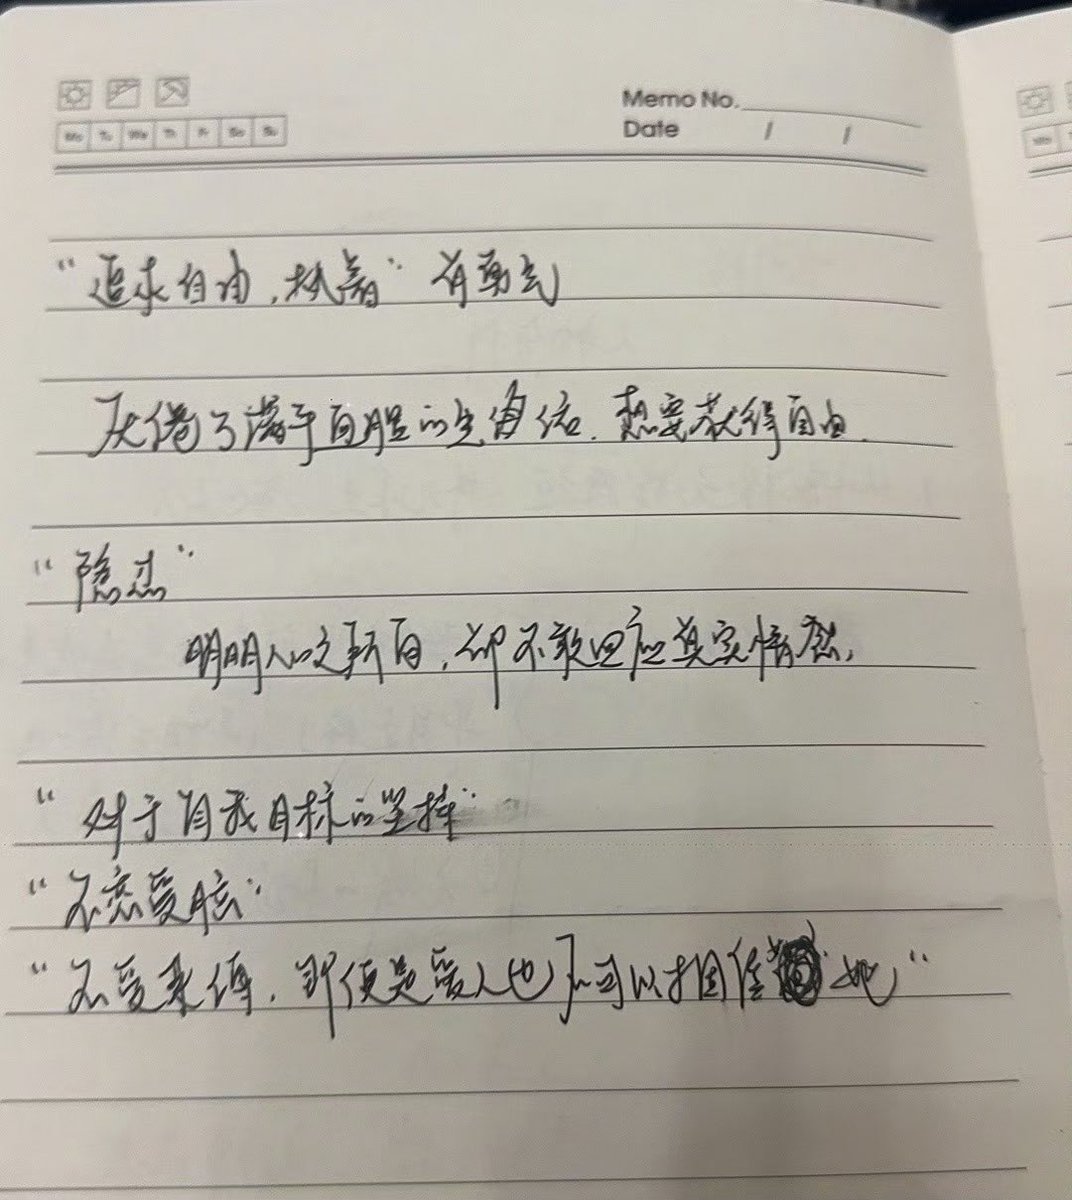 Memo No.
Date / /
Mo Tu We Th Fr Sa Su
"追求自由,执着" 有勇气
厌倦了满于自我的生活,想要获得自由.
"隐忍"
明明人的支所自,却不敢回应真实情感,
"对于自我目标的坚持"
"不恋爱脑"
"不受束缚,即便是爱人也不可以捆住她"